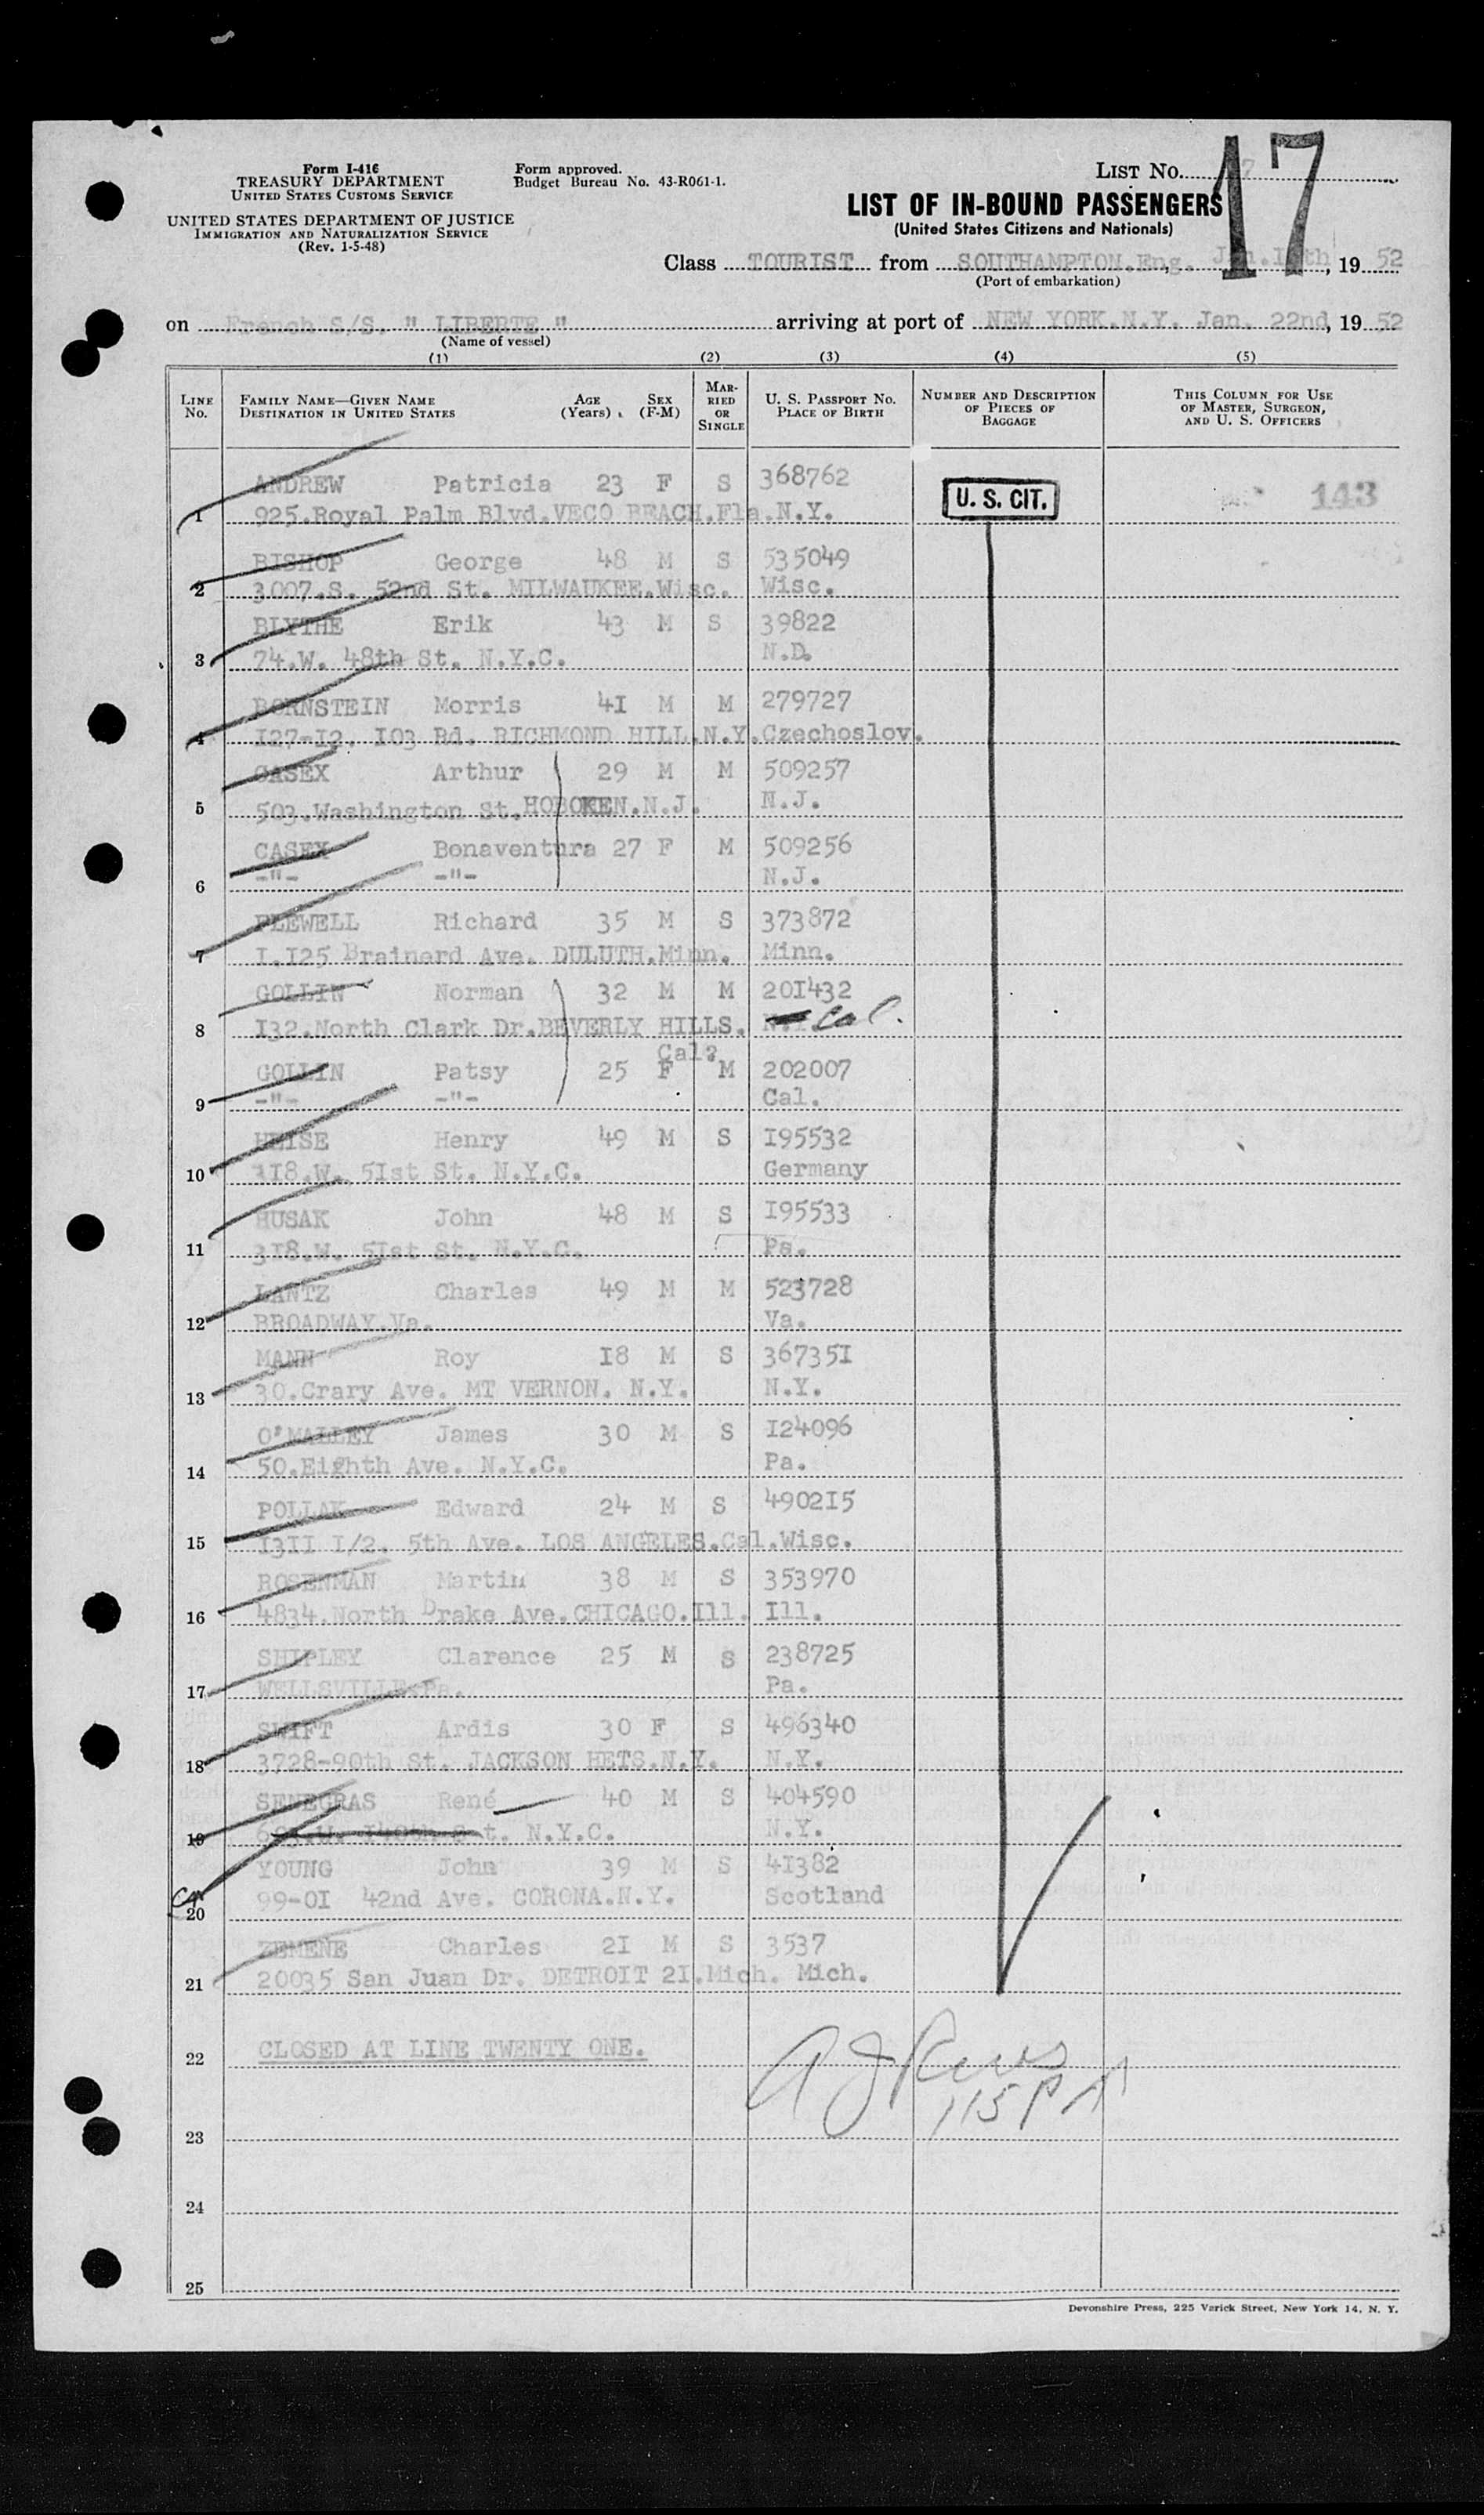 Form I-416
TREASURY DEPARTMENT
UNITED STATES CUSTOMS SERVICE
UNITED STATES DEPARTMENT OF JUSTICE
IMMIGRATION AND NATURALIZATION SERVICE
(Rev. 1-5-48)
Form approved.
Budget Bureau No. 43-R061-1.
LIST NO. 17
LIST OF IN-BOUND PASSENGERS
(United States Citizens and Nationals)
Class TOURIST from SOUTHAMPTON.Eng. , 19 52
(Port of embarkation)
on French S/S. " LIBERTE " arriving at port of NEW YORK.N.Y. Jan. 22nd, 19 52
(Name of vessel)
(1) (2) (3) (4) (5)
LINE NO. FAMILY NAME—GIVEN NAME DESTINATION IN UNITED STATES AGE (Years) SEX (F-M) MARRIED OR SINGLE U. S. PASSPORT NO. PLACE OF BIRTH NUMBER AND DESCRIPTION OF PIECES OF BAGGAGE THIS COLUMN FOR USE OF MASTER, SURGEON, AND U. S. OFFICERS
ANDREW Patricia 23 F S 368762 U. S. CIT. 143
1 925.Royal Palm Blvd.VECO BEACH.Fla.N.Y.
BISHOP George 48 M S 535049
2 3007.S. 52nd St. MILWAUKEE.Wisc. Wisc.
BLYTHE Erik 43 M S 39822
3 74.W. 48th St. N.Y.C. N.D.
BORNSTEIN Morris 41 M M 279727
4 127-12. 103 Rd. RICHMOND HILL.N.Y.Czechoslov.
CASEX Arthur 29 M M 509257
5 503.Washington St.HOBOKEN.N.J. N.J.
CASEX Bonaventura 27 F M 509256
6 -"- -"- N.J.
FLEWELL Richard 35 M S 373872
7 I.I25 Brainerd Ave. DULUTH.Minn. Minn.
GOLLIN Norman 32 M M 201432
8 132.North Clark Dr.BEVERLY HILLS. Cal.
Cal?
GOLLIN Patsy 25 F M 202007
9 -"- -"- Cal.
HEISE Henry 49 M S 195532
10 318.W. 51st St. N.Y.C. Germany
HUSAK John 48 M S 195533
11 318.W. 51st St. N.Y.C. Pa.
LANTZ Charles 49 M M 523728
12 BROADWAY.Va. Va.
MANN Roy 18 M S 367351
13 30.Crary Ave. MT VERNON. N.Y. N.Y.
O'MALLEY James 30 M S 124096
14 50.Eighth Ave. N.Y.C. Pa.
POLLAK Edward 24 M S 490215
15 1311 1/2. 5th Ave. LOS ANGELES.Cal.Wisc.
ROSENMAN Martin 38 M S 353970
16 4834.North Drake Ave.CHICAGO.Ill. Ill.
SHIPLEY Clarence 25 M S 238725
17 WELLSVILLE.Pa. Pa.
SWIFT Ardis 30 F S 496340
18 3728-90th St. JACKSON HETS.N.Y. N.Y.
SENEGRAS René 40 M S 404590
19 N.Y.C. N.Y.
YOUNG John 39 M S 41382
20 99-01 42nd Ave. CORONA.N.Y. Scotland
ZEMENE Charles 21 M S 3537
21 20035 San Juan Dr. DETROIT 21.Mich. Mich.
22 CLOSED AT LINE TWENTY ONE.
115 P M
23
24
25
Devonshire Press, 225 Varick Street, New York 14, N. Y.